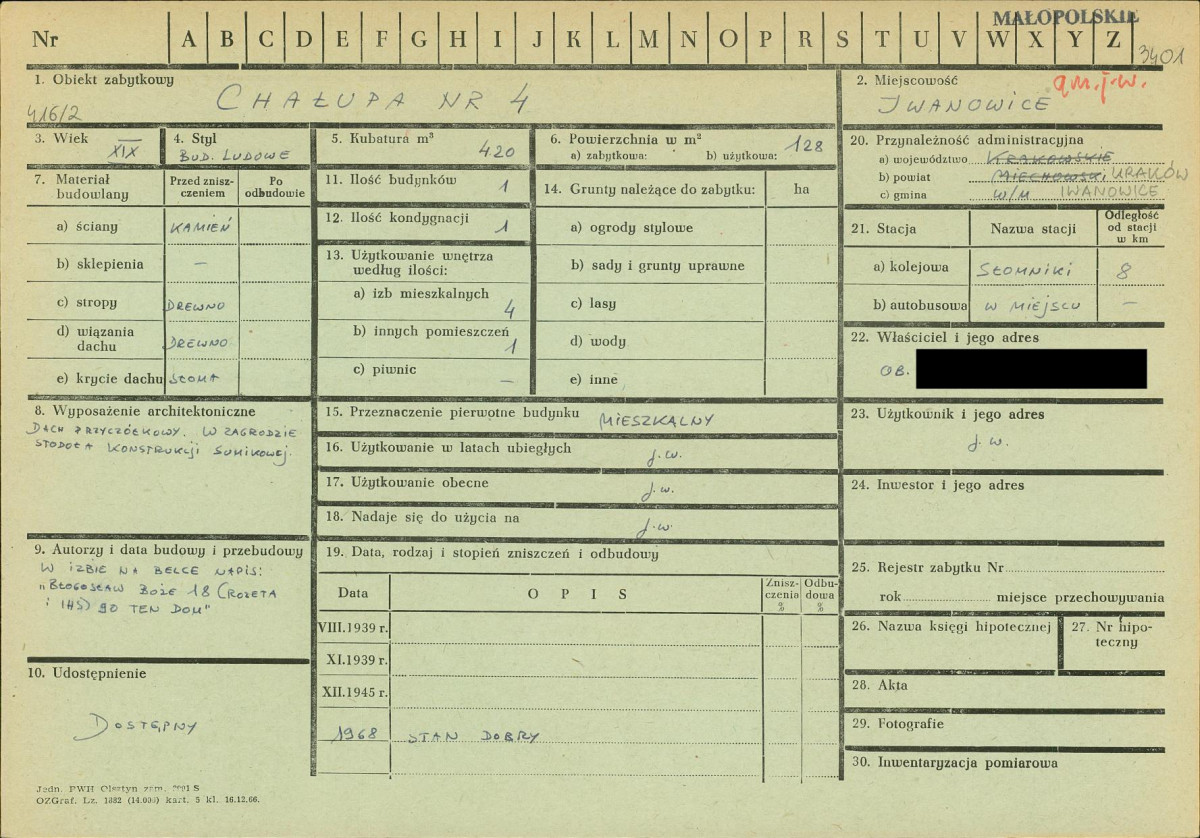 MAŁOPOLSKIE
Nr A B C D E F G H I J K L M N O P R S T U V W X Y Z
3401
1. Obiekt zabytkowy
CHAŁUPA NR 4
416/2
2. Miejscowość
gm. j.w.
IWANOWICE
3. Wiek
XIX
4. Styl
BUD. LUDOWE
5. Kubatura m³
420
6. Powierzchnia w m²
a) zabytkowa: b) użytkowa: 128
20. Przynależność administracyjna
a) województwo KRAKOWSKIE
b) powiat MIECHOWSKI KRAKÓW
c) gmina W/M IWANOWICE
7. Materiał budowlany
Przed zniszczeniem
Po odbudowie
a) ściany KAMIEŃ
b) sklepienia —
c) stropy DREWNO
d) wiązania dachu DREWNO
e) krycie dachu SŁOMA
11. Ilość budynków 1
12. Ilość kondygnacji 1
13. Użytkowanie wnętrza według ilości:
a) izb mieszkalnych 4
b) innych pomieszczeń 1
c) piwnic —
14. Grunty należące do zabytku: ha
a) ogrody stylowe
b) sady i grunty uprawne
c) lasy
d) wody
e) inne
21. Stacja Nazwa stacji Odległość od stacji w km
a) kolejowa SŁOMNIKI 8
b) autobusowa W MIEJSCU —
22. Właściciel i jego adres
OB.
8. Wyposażenie architektoniczne
DACH PRZYCZÓŁKOWY. W ZAGRODZIE
STODOŁA KONSTRUKCJI SUMIKOWEJ.
15. Przeznaczenie pierwotne budynku MIESZKALNY
16. Użytkowanie w latach ubiegłych j.w.
17. Użytkowanie obecne j.w.
18. Nadaje się do użycia na j.w.
23. Użytkownik i jego adres
j.w.
24. Inwestor i jego adres
9. Autorzy i data budowy i przebudowy
W IZBIE NA BELCE NAPIS:
„BŁOGOSŁAW BOŻE 18 (ROZETA
i IHS) 90 TEN DOM"
19. Data, rodzaj i stopień zniszczeń i odbudowy
Data OPIS Zniszczenia % Odbudowa %
VIII.1939 r.
XI.1939 r.
XII.1945 r.
1968 STAN DOBRY
25. Rejestr zabytku Nr
rok miejsce przechowywania
26. Nazwa księgi hipotecznej
27. Nr hipoteczny
28. Akta
29. Fotografie
30. Inwentaryzacja pomiarowa
10. Udostępnienie
DOSTĘPNY
Jedn. PWH Olsztyn zam.
OZGraf. Lz. 1382 (14.000) kart. 5 kl. 16.12.66.